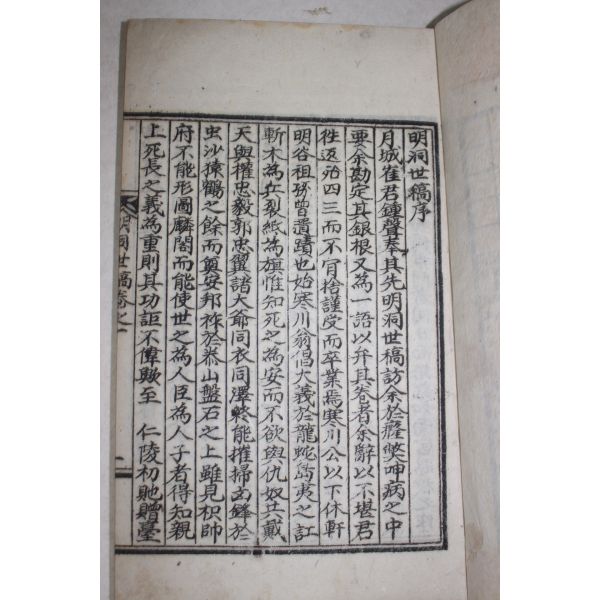 明洞世稿序
月城崔君鍾聲奉其先明洞世稿訪余於癃獘呻病之中
要余勘定其銀根又為一語以弁其卷者余辭以不堪君
徃返殆四三而不肯捨謹受而卒業焉寒川公以下休軒
明谷祖孫曾遺蹟也始寒川翁倡大義於龍蛇島夷之訌
斬木為兵裂紙為旗惟知死之為安而不欲與仇奴共戴
天與權忠毅郭忠翼諸大爺同衣同澤終能摧掃凶鋒於
虫沙猿鶴之餘而奠安邦祚於泰山盤石之上雖見枳帥
府不能形圖麟閣而能使世之為人臣為人子者得知親
上死長之義為重則其功詎不偉歟至 仁陵初貤贈臺
明洞世稿卷之一